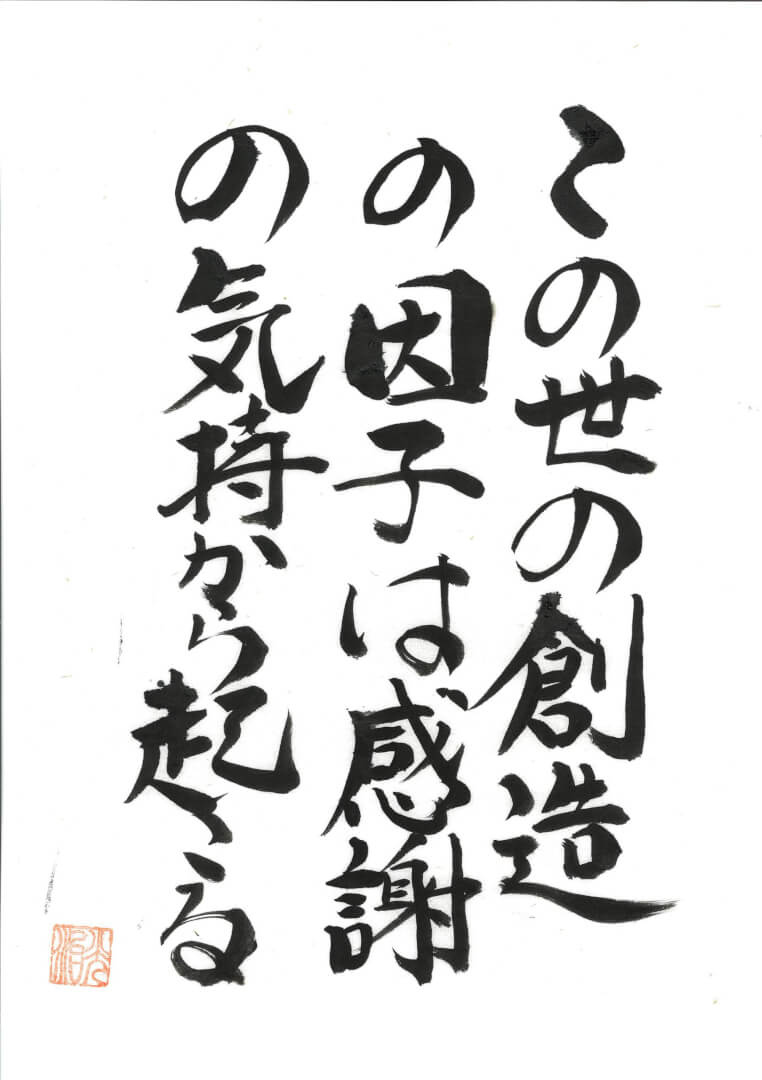 この世の創造
の因子は感謝
の気持から起こる